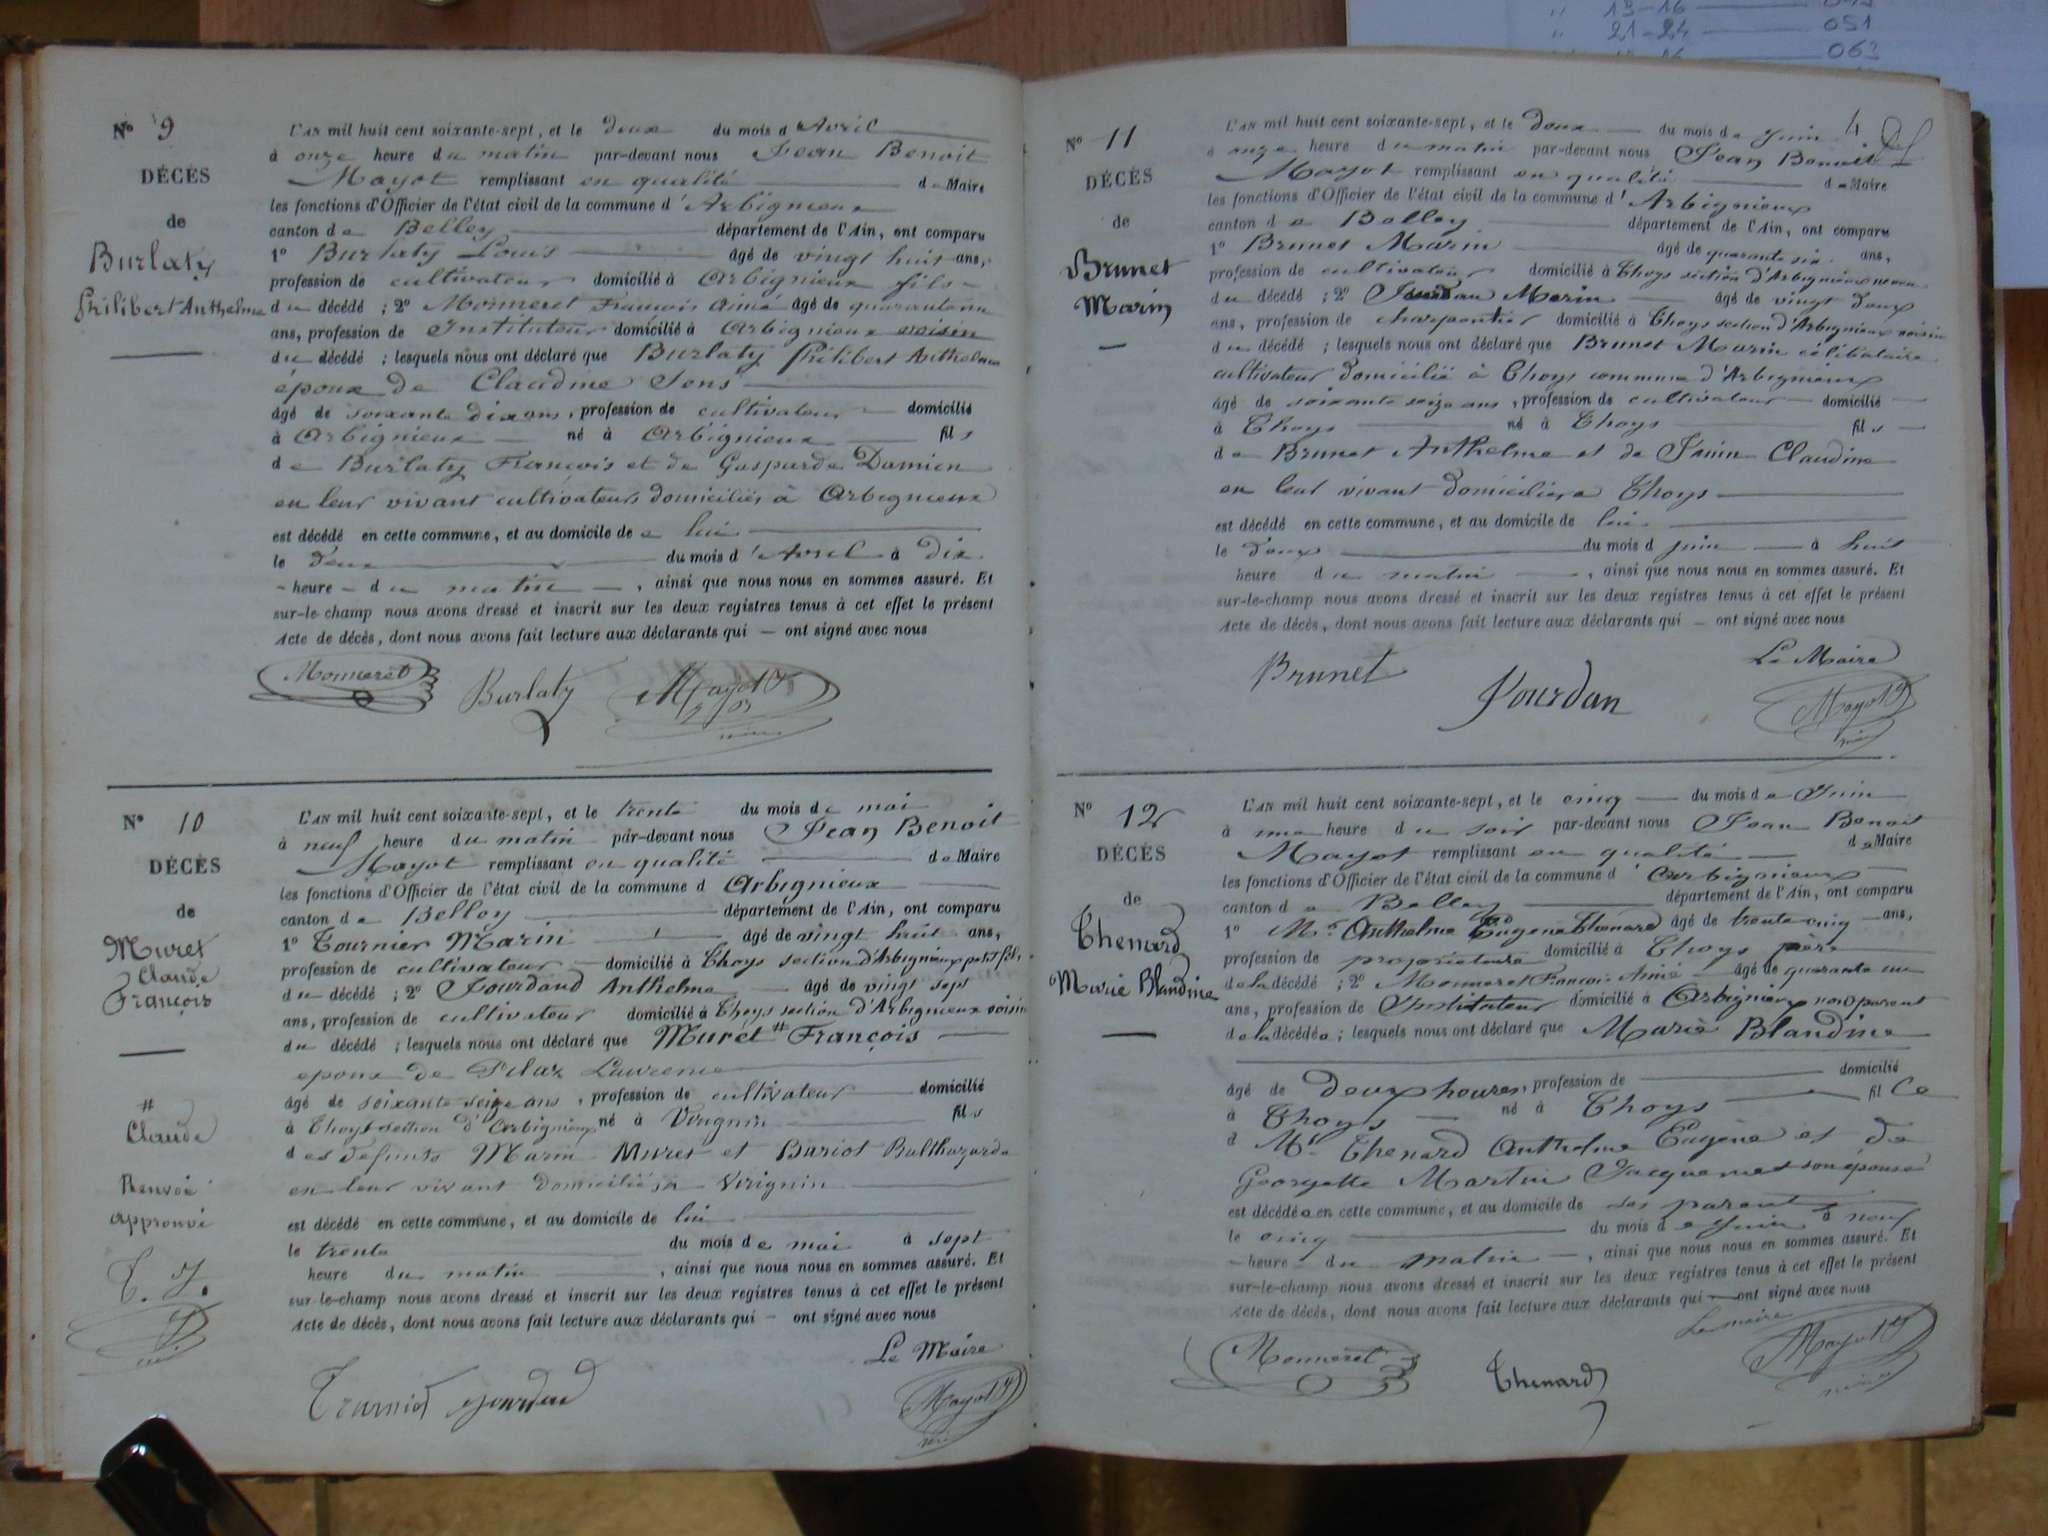 " 13-16
" 21-24 051
063
N° 9
DÉCÈS
de
Burlaty
Philibert Anthelme
L'AN mil huit cent soixante-sept, et le deux du mois d'Avril
à onze heure du matin par-devant nous Jean Benoit
Mayot remplissant en qualité de Maire
les fonctions d'Officier de l'état civil de la commune d'Arbignieux
canton de Belley département de l'Ain, ont comparu
1° Burlaty Louis âgé de vingt huit ans,
profession de cultivateur domicilié à Arbignieux fils
du décédé ; 2° Monneret François Aimé âgé de quarante un
ans, profession de Instituteur domicilié à Arbignieux voisin
du décédé ; lesquels nous ont déclaré que Burlaty Philibert Anthelme
époux de Claudine Sens
âgé de soixante dix ans, profession de cultivateur domicilié
à Arbignieux né à Arbignieux fils
de Burlaty François et de Gasparde Damien
en leur vivant cultivateurs domiciliés à Arbignieux
est décédé en cette commune, et au domicile de lui
le deux du mois d'Avril à dix
heure du matin, ainsi que nous nous en sommes assuré. Et
sur-le-champ nous avons dressé et inscrit sur les deux registres tenus à cet effet le présent
Acte de décès, dont nous avons fait lecture aux déclarants qui – ont signé avec nous
Monneret Burlaty Mayot
N° 10
DÉCÈS
de
Muret
Claude
François
#
Claude
Renvoi
approuvé
T. J.
L'AN mil huit cent soixante-sept, et le trente du mois de mai
à neuf heure du matin par-devant nous Jean Benoit
Mayot remplissant en qualité de Maire
les fonctions d'Officier de l'état civil de la commune d Arbignieux
canton de Belley département de l'Ain, ont comparu
1° Tournier Marin âgé de vingt huit ans,
profession de cultivateur domicilié à Thoys section d'Arbignieux petit fils
du décédé ; 2° Jourdand Anthelme âgé de vingt sept
ans, profession de cultivateur domicilié à Thoys section d'Arbignieux voisin
du décédé ; lesquels nous ont déclaré que Muret # François
epoux de Pilaz Laurence
âgé de soixante seize ans, profession de cultivateur domicilié
à Thoys section d'Arbignieux né à Virignin fils
des defunts Marin Muret et Bariot Balthazarde
en leur vivant domiciliés à Virignin
est décédé en cette commune, et au domicile de lui
le trente du mois de mai à sept
heure du matin, ainsi que nous nous en sommes assuré. Et
sur-le-champ nous avons dressé et inscrit sur les deux registres tenus à cet effet le présent
Acte de décès, dont nous avons fait lecture aux déclarants qui – ont signé avec nous
Le Maire
Mayot
N° 11
DÉCÈS
de
Brunet
Marin
L'AN mil huit cent soixante-sept, et le deux du mois de Juin 4
à onze heure du matin par-devant nous Jean Benoit
Mayot remplissant en qualité de Maire
les fonctions d'Officier de l'état civil de la commune d'Arbignieux
canton de Belley département de l'Ain, ont comparu
1° Brunet Marin âgé de quarante six ans,
profession de cultivateur domicilié à Thoys section d'Arbignieux neveu
du décédé ; 2° Jourdan Marin âgé de vingt deux
ans, profession de charpentier domicilié à Thoys section d'Arbignieux voisin
du décédé ; lesquels nous ont déclaré que Brunet Marin célibataire
cultivateur domicilié à Thoys commune d'Arbignieux
âgé de soixante seize ans, profession de cultivateur domicilié
à Thoys né à Thoys fils
de Brunet Anthelme et de Juin Claudine
en leur vivant domiciliés à Thoys
est décédé en cette commune, et au domicile de lui
le deux du mois d juin à huit
heure du matin, ainsi que nous nous en sommes assuré. Et
sur-le-champ nous avons dressé et inscrit sur les deux registres tenus à cet effet le présent
Acte de décès, dont nous avons fait lecture aux déclarants qui – ont signé avec nous
Le Maire
Brunet Jourdan Mayot
N° 12
DÉCÈS
de
Thenard
Marie Blandine
L'AN mil huit cent soixante-sept, et le cinq du mois de Juin
à une heure du soir par-devant nous Jean Benoit
Mayot remplissant en qualité de Maire
les fonctions d'Officier de l'état civil de la commune d'Arbignieux
canton de Belley département de l'Ain, ont comparu
1° Mr. Anthelme Eugène Thénard âgé de trente cinq ans,
profession de propriétaire domicilié à Thoys père
de la décédé ; 2° Monneret François Aimé âgé de quarante un
ans, profession de Instituteur domicilié à Arbignieux non parent
de la décédée ; lesquels nous ont déclaré que Marie Blandine
âgé de deux heures, profession de domicilié
à Thoys né à Thoys fille
d Mr. Thenard Anthelme Eugène et de
Georgette Martin Jacquemet son épouse
est décédée en cette commune, et au domicile de ses parents
le cinq du mois de Juin à neuf
heure du matin, ainsi que nous nous en sommes assuré. Et
sur-le-champ nous avons dressé et inscrit sur les deux registres tenus à cet effet le présent
Acte de décès, dont nous avons fait lecture aux déclarants qui – ont signé avec nous
Le maire
Monneret Thenard Mayot